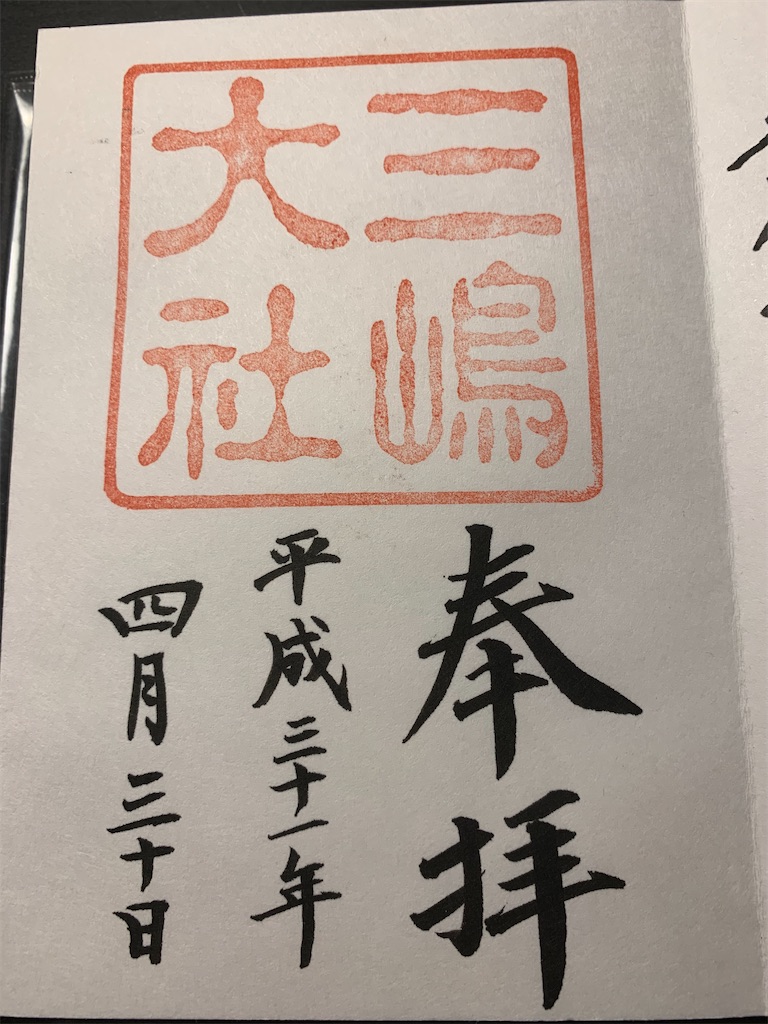 三嶋
大社
奉拝
平成三十一年
四月三十日